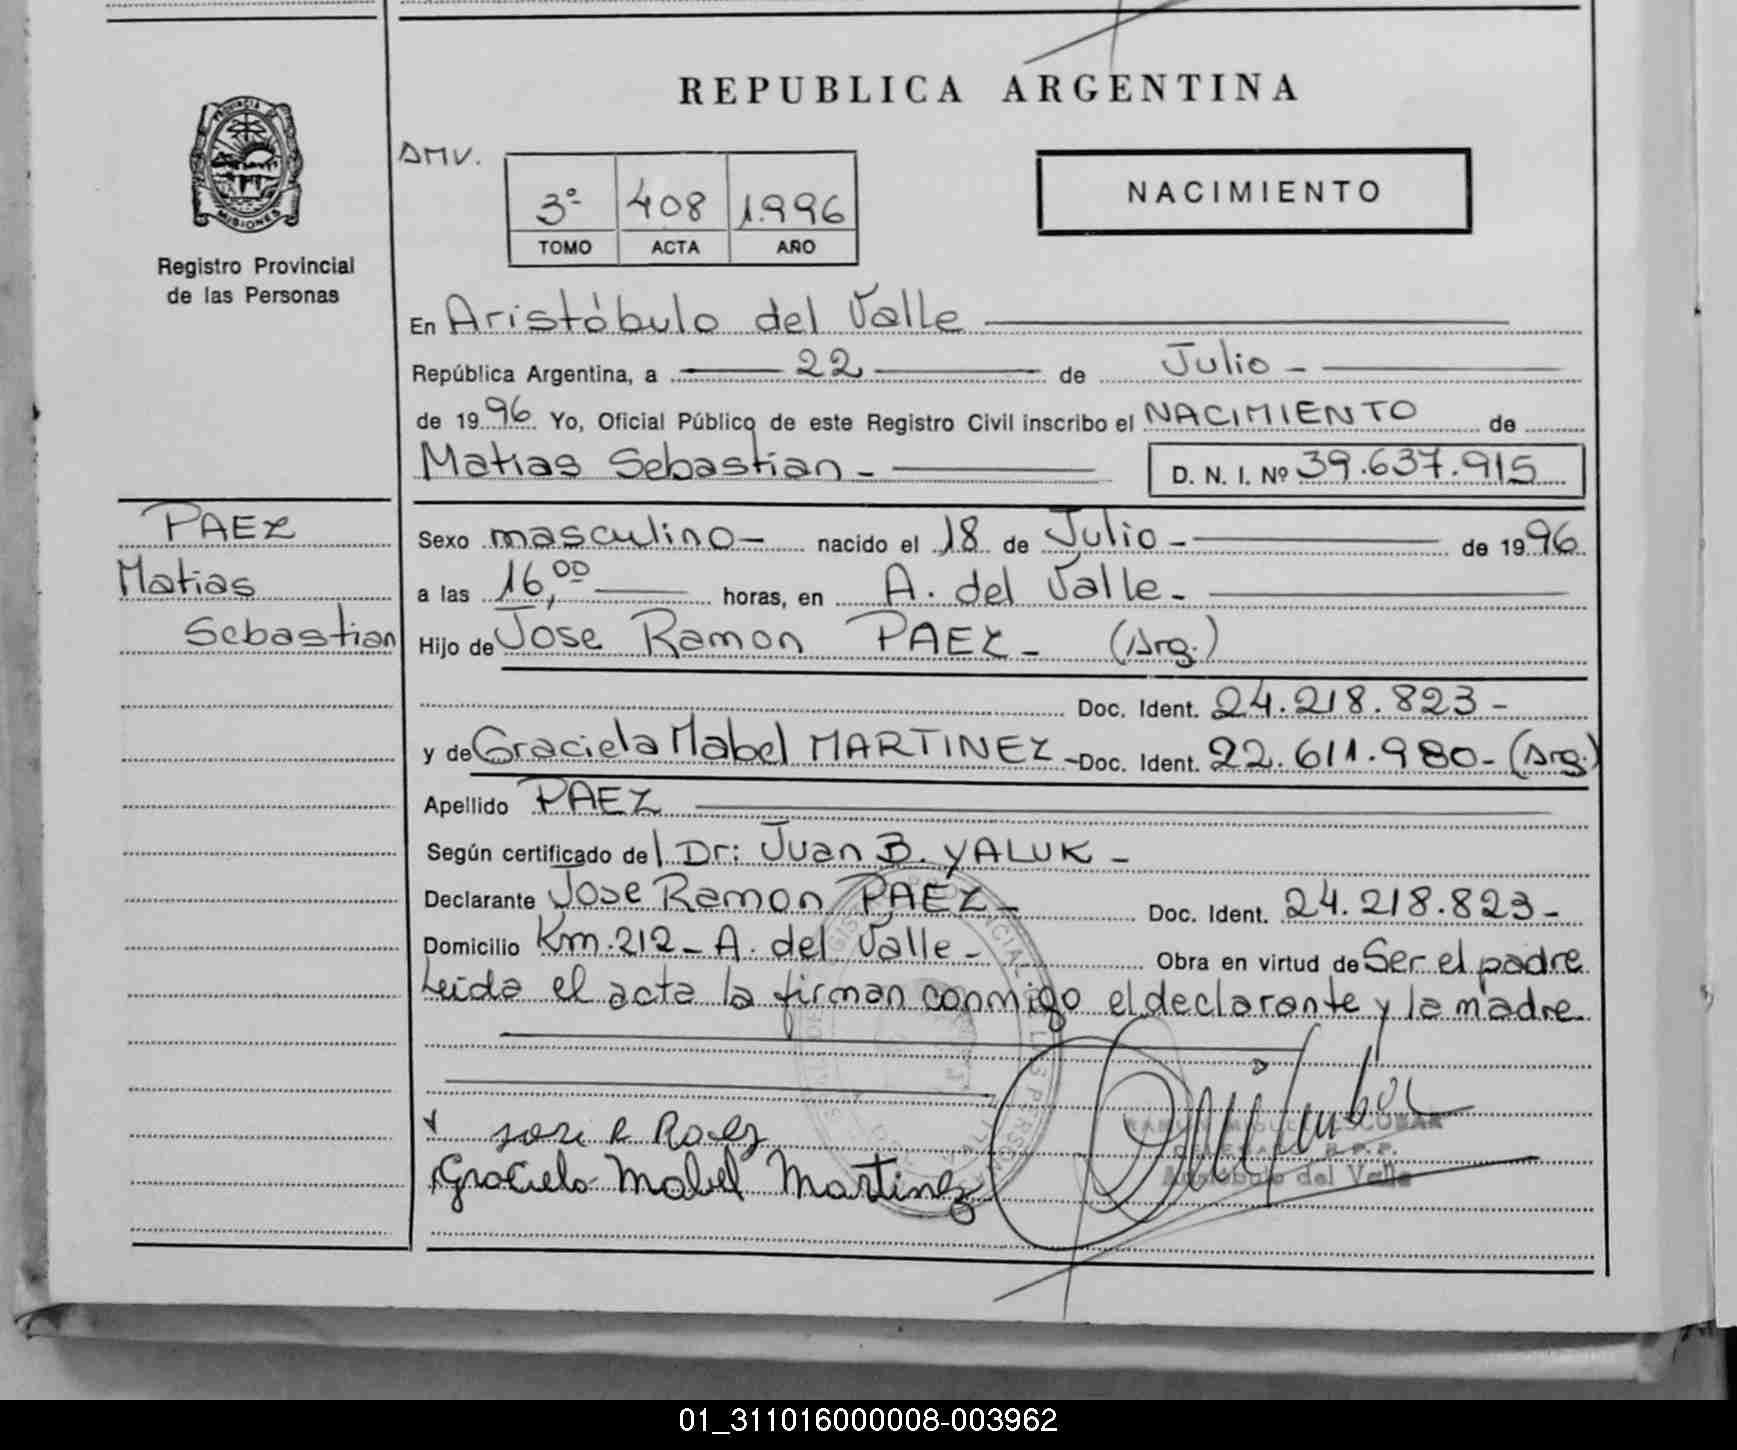 REPUBLICA ARGENTINA
PROVINCIA DE
MISIONES
Registro Provincial
de las Personas
AMV.
3º 408 1.996
TOMO ACTA AÑO
NACIMIENTO
En Aristóbulo del Valle
República Argentina, a 22 de Julio -
de 1996 Yo, Oficial Público de este Registro Civil inscribo el NACIMIENTO de
Matias Sebastian - D. N. I. Nº 39.637.915
PAEZ
Matias
Sebastian
Sexo masculino - nacido el 18 de Julio - de 1996
a las 16,00 horas, en A. del Valle -
Hijo de Jose Ramon PAEZ - (Arg.)
Doc. Ident. 24.218.823 -
y de Graciela Mabel MARTINEZ - Doc. Ident. 22.611.980 - (Arg.)
Apellido PAEZ
Según certificado del Dr: Juan B. YALUK -
Declarante Jose Ramon PAEZ - Doc. Ident. 24.218.823 -
Domicilio Km. 212 - A. del Valle - Obra en virtud de Ser el padre
Leida el acta la firman conmigo el declarante y la madre
Jose R Paez
Graciela Mabel Martinez
RAMON MIGUEL ESCOBAR
DELEGADO R.P.P.
Aristóbulo del Valle
01_311016000008-003962